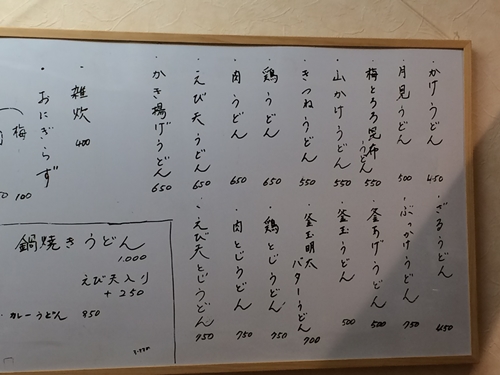 ・かけうどん 450
・月見うどん 500
・梅とろろ昆布うどん 550
・山かけうどん 550
・きつねうどん 550
・鶏うどん 650
・肉うどん 650
・えび天うどん 650
・かき揚げうどん 650
・雑炊 400
・おにぎらず
梅 100
・ざるうどん 450
・ぶっかけうどん 750
・釜あげうどん 500
・釜玉うどん 500
・釜玉明太バターうどん 700
・鶏とじうどん 750
・肉とじうどん 750
・えび天とじうどん 750
鍋焼きうどん
1,000
えび天入り
+250
・カレーうどん 850